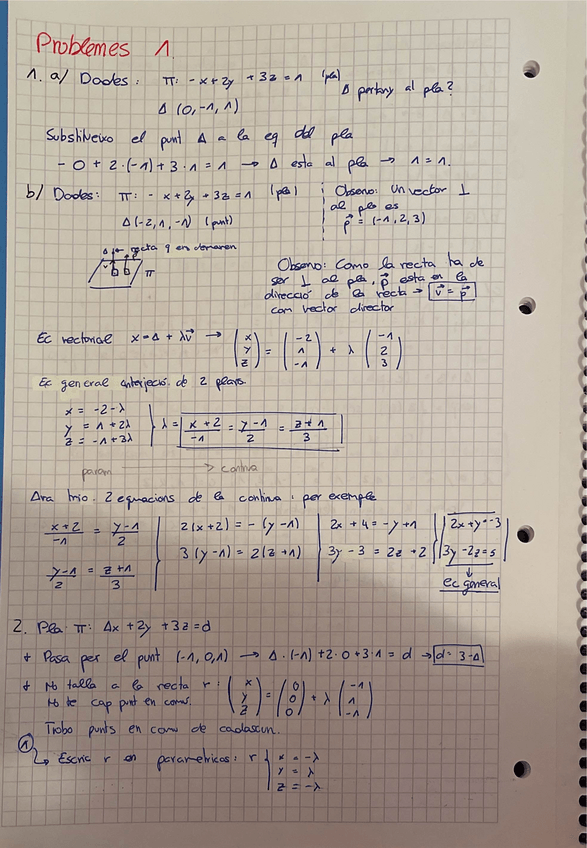 Problemes 1.
1. a/ Dades: π: -x+2y +3z=1 (pla)
A pertany al pla?
A (0,-1,1)
Substitueixo el punt A a la eq del pla
- 0 + 2·(-1) + 3·1 = 1 → A esta al pla → 1=1.
b/ Dades: π: - x+2y+3z=1 (pla)
A(-2,1,-1) (punt)
Observo: Un vector ⊥
al pla es
p⃗ = (-1,2,3)
recta q en demanen
π
Observo: Como la recta ha de
ser ⊥ al pla, p⃗ esta en la
direcció de la recta → v⃗ = p⃗
com vector director
Ec vectorial x=A+λv⃗ → (x y z) = (-2 1 -1) + λ (-1 2 3)
Ec general intersecció de 2 plans.
x = -2-λ
y = 1+2λ
z = -1+3λ
λ = (x+2)/-1 = (y-1)/2 = (z+1)/3
param → continua
Ara trio 2 equacions de la continua, per exemple
(x+2)/-1 = (y-1)/2
(y-1)/2 = (z+1)/3
2(x+2) = -(y-1)
3(y-1) = 2(z+1)
2x+4=-y+1
3y-3 = 2z+2
2x+y=-3
3y-2z=5
ec general
2. Pla π: Ax+2y+3z=d
+ Pasa per el punt (-1,0,1) → A·(-1)+2·0+3·1 = d → d=3-A
+ No talla a la recta r: (x y z) = (0 0 0) + λ (-1 1 -1)
No te cap punt en comú.
Trobo punts en comú de cadascun.
① Escric r en paramètriques: r { x = -λ
y = λ
z = -λ